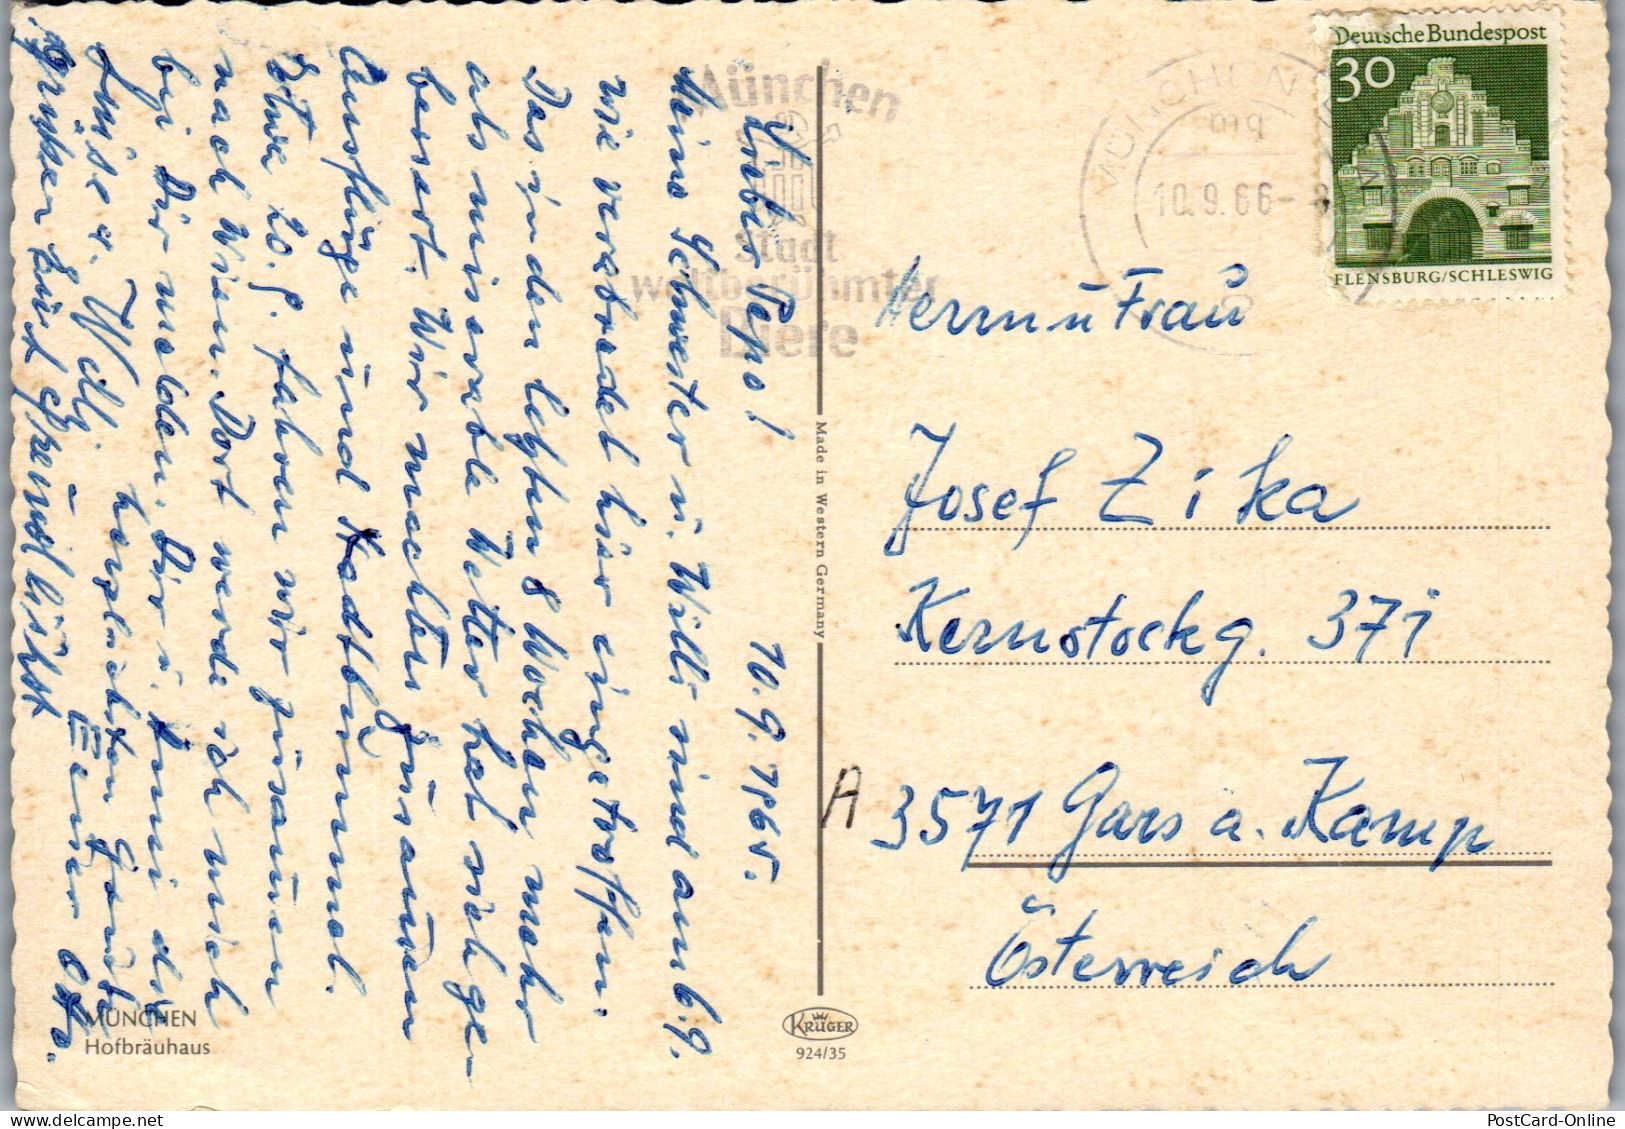 Lieber Pepo!
10.9.1965.
Meine Schwester u. Willi sind am 6.9.
wie verabredet hier eingetroffen.
Das in den letzten 8 Wochen mehr
als miserable Wetter hat sich ge-
bessert. Wir machten zusammen
Ausflüge und Stadtbummel.
Etwa 20.9. fahren wir zusammen
nach Wien. Dort werde ich mich
bei Dir melden. Dir u. die
herzlichsten
Luise u. Willi
grüßen Euch freundlichst
Euer Otto.
MÜNCHEN
Hofbräuhaus
München
Stadt
weltberühmter
Biere
Made in Western Germany
KRÜGER
924/35
MÜNCHEN
10.9.66-
Deutsche Bundespost
30
FLENSBURG/SCHLESWIG
Herrn u Frau
Josef Zika
Kernstockg. 371
A 3571 Gars a. Kamp
Österreich
PostCard-Online